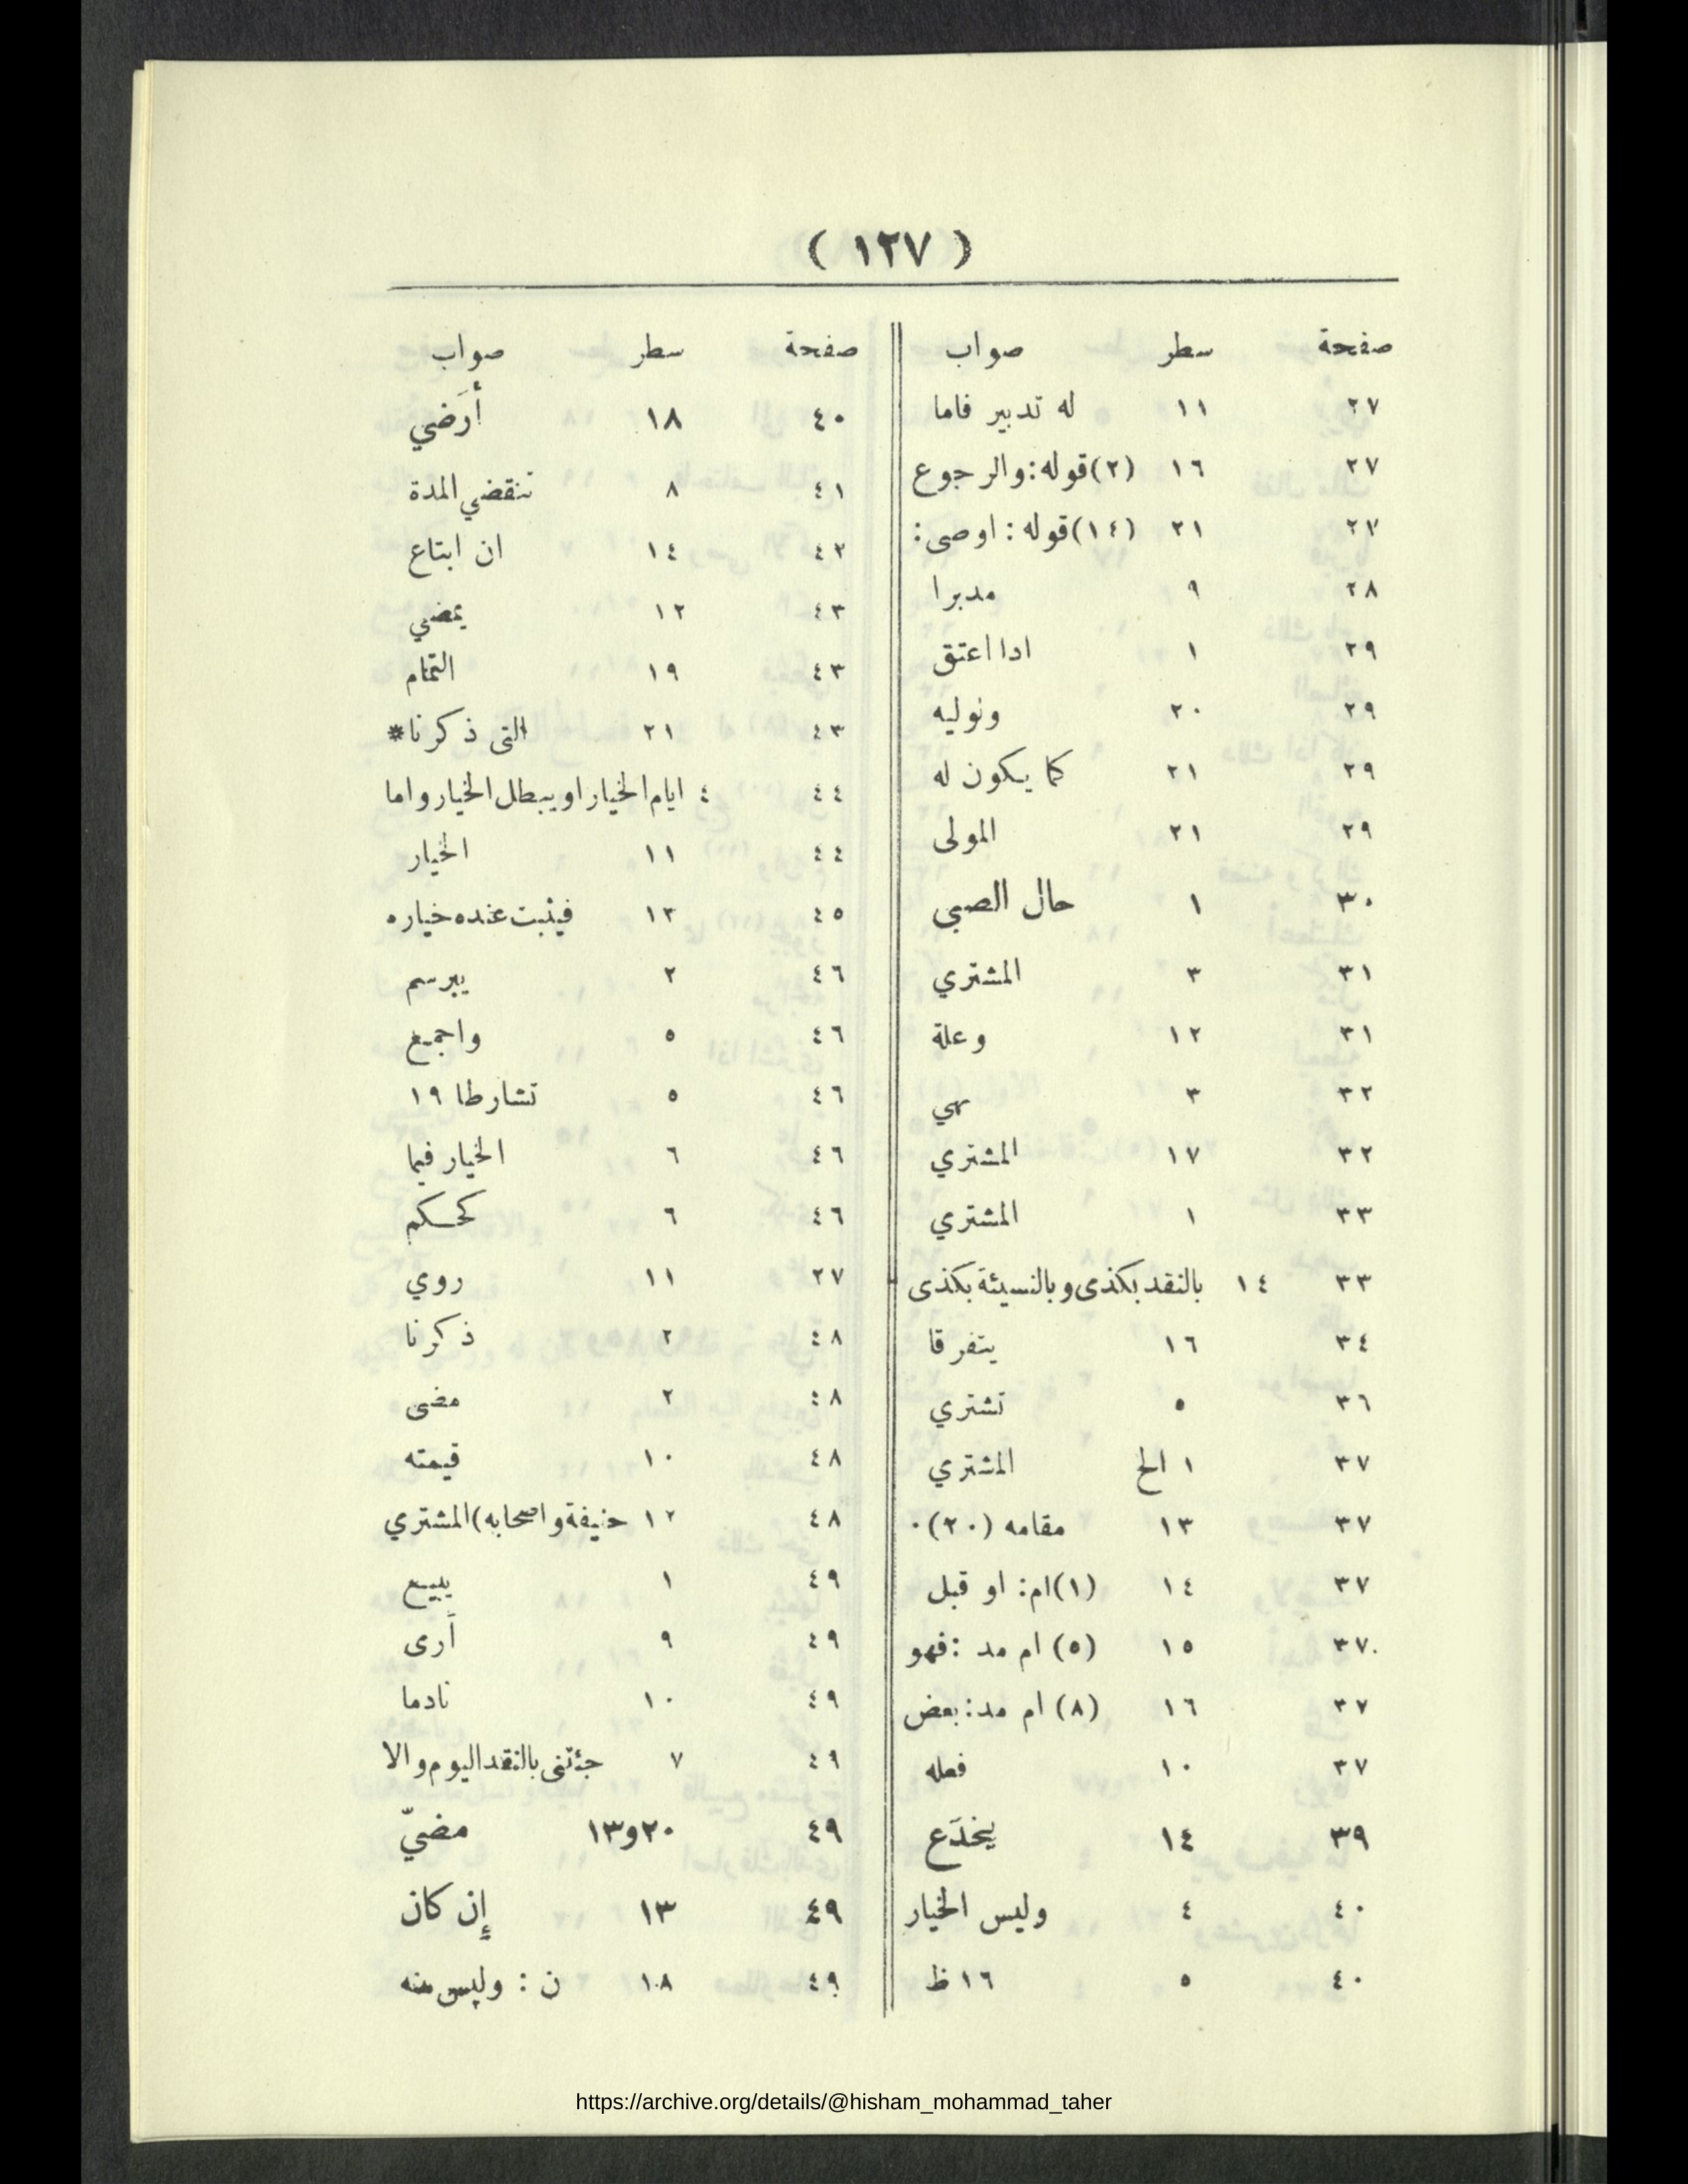 ( ١٢٧ )
صفحة سطر صواب
٢٧ ١١ له تدبير فاما
٢٧ ١٦ (٢)قوله:والرجوع
٢٧ ٢١ (١٤)قوله: اوصى:
٢٨ ٩ مدبرا
٢٩ ١ ادا اعتق
٢٩ ٢٠ ونوليه
٢٩ ٢١ كما يكون له
٢٩ ٢١ المولى
٣٠ ١ حال الصبي
٣١ ٣ المشتري
٣١ ١٢ وعلة
٣٢ ٣ بهي
٣٢ ١٧ المشتري
٣٣ ١ المشتري
٣٣ ١٤ بالنقد بكذى وبالنسيئة بكذى
٣٤ ١٦ يتفرقا
٣٦ ٥ تشتري
٣٧ ١ الخ المشتري
٣٧ ١٣ مقامه (٢٠).
٣٧ ١٤ (١)ام: او قبل
٣٧ ١٥ (٥) ام مد :فهو
٣٧ ١٦ (٨) ام مد:بعض
٣٧ ١٠ فعله
٣٩ ١٤ يخدَع
٤٠ ٤ وليس الخيار
٤٠ ٥ ١٦ ظ
صفحة سطر صواب
٤٠ ١٨ أرَضي
٤١ ٨ تنقضي المدة
٤٢ ١٤ ان ابتاع
٤٣ ١٢ يمضي
٤٣ ١٩ التمام
٤٣ ٢١ التى ذكرنا*
٤٤ ٤ ايام الخيار او يبطل الخيار واما
٤٤ ١١ الخيار
٤٥ ١٣ فيثبت عنده خياره
٤٦ ٢ يبرسم
٤٦ ٥ واجميع
٤٦ ٥ تشارطا ١٩
٤٦ ٦ الخيار فيما
٤٦ ٦ كحكم
٢٧ ١١ روي
٤٨ ٢ ذكرنا
٤٨ ٢ مضى
٤٨ ١٠ قيمته
٤٨ ١٢ حنيفة واصحابه) المشتري
٤٩ ١ يبيع
٤٩ ٩ أَرى
٤٩ ١٠ نادما
٤٩ ٧ جئتنى بالنقد اليوم والا
٤٩ ٢٠و١٣ مضيّ
٤٩ ١٣ إن كان
٤٩ ١٨ ن : وليس منه
https://archive.org/details/@hisham_mohammad_taher